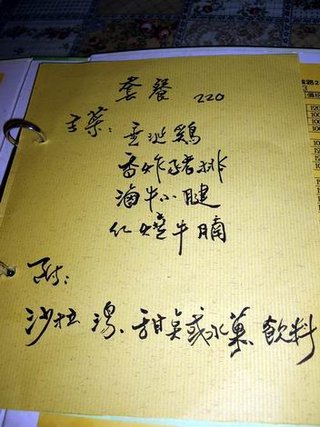 套餐 220
主菜：無骓鶏
香炸豬排
滷牛小腱
紅燒牛腩
附：
沙拉 湯、甜点或水菓 飲料